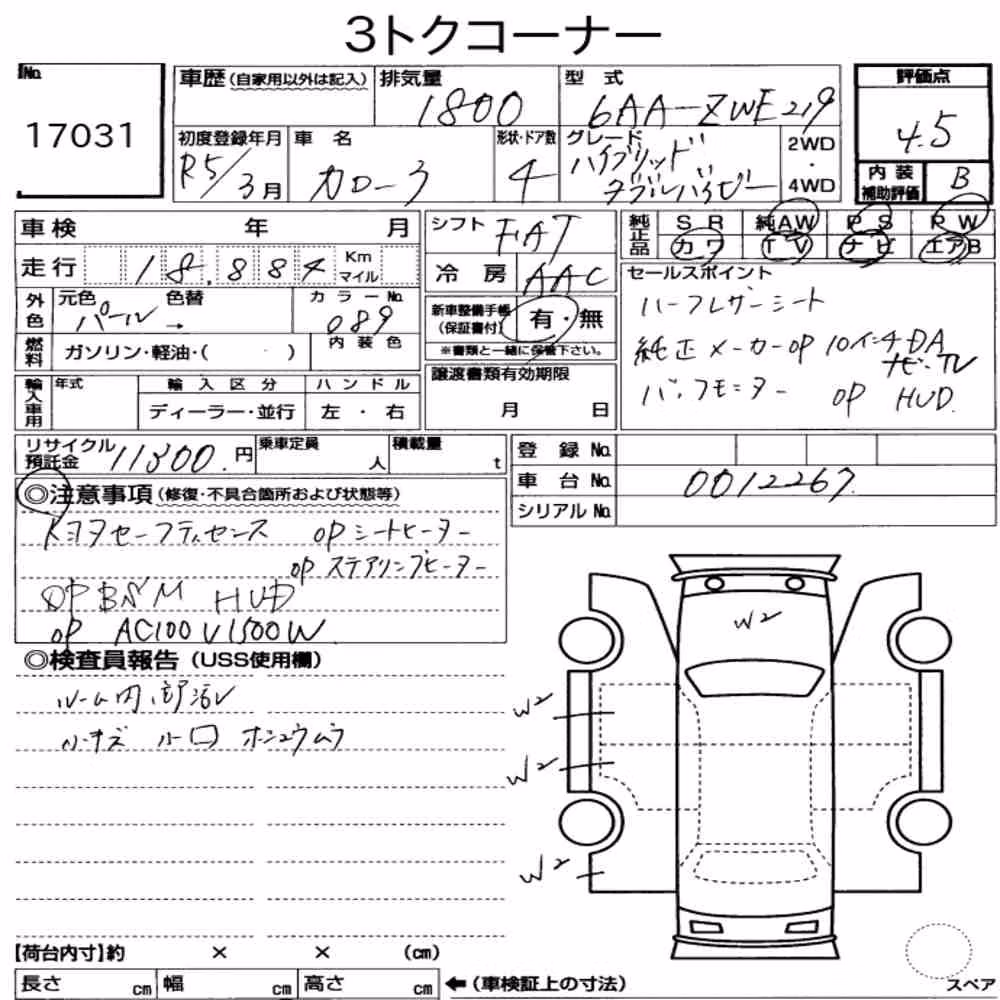 3トクコーナー
No.
17031
車歴(自家用以外は記入)
排気量
1800
型式
6AA-ZWE219
評価点
4.5
内装補助評価
B
初度登録年月
R5/3月
車名
カローラ
形状・ドア数
4
グレード
ハイブリッド
ダブルバイビー
2WD
・
4WD
車検 年 月
走行 18,884 Km マイル
外色
元色 パール → 色替
カラーNo. 089
燃料
ガソリン・軽油・( )
内装色
輸入車用
年式
輸入区分
ディーラー・並行
ハンドル
左・右
シフト FAT
冷房 AAC
新車整備手帳(保証書付)
有・無
※書類と一緒に保管下さい。
譲渡書類有効期限
月 日
純正品
SR 純AW PS PW
カワ TV ナビ エアB
セールスポイント
ハーフレザーシート
純正メーカーOP 10インチDA
ナビ・TV
バックモニター OP HUD
リサイクル預託金 11300円
乗車定員 人
積載量 t
登録No.
車台No. 0012267
シリアルNo.
◎注意事項(修復・不具合箇所および状態等)
トヨタセーフティセンス OPシートヒーター
OPステアリングヒーター
OP BSM HUD
OP AC100V1500W
◎検査員報告(USS使用欄)
ルーム内部汚レ
小キズ 小凹
W2
W2
W2
W2
【荷台内寸】約 × × (cm)
長さ cm 幅 cm 高さ cm ←(車検証上の寸法)
スペア